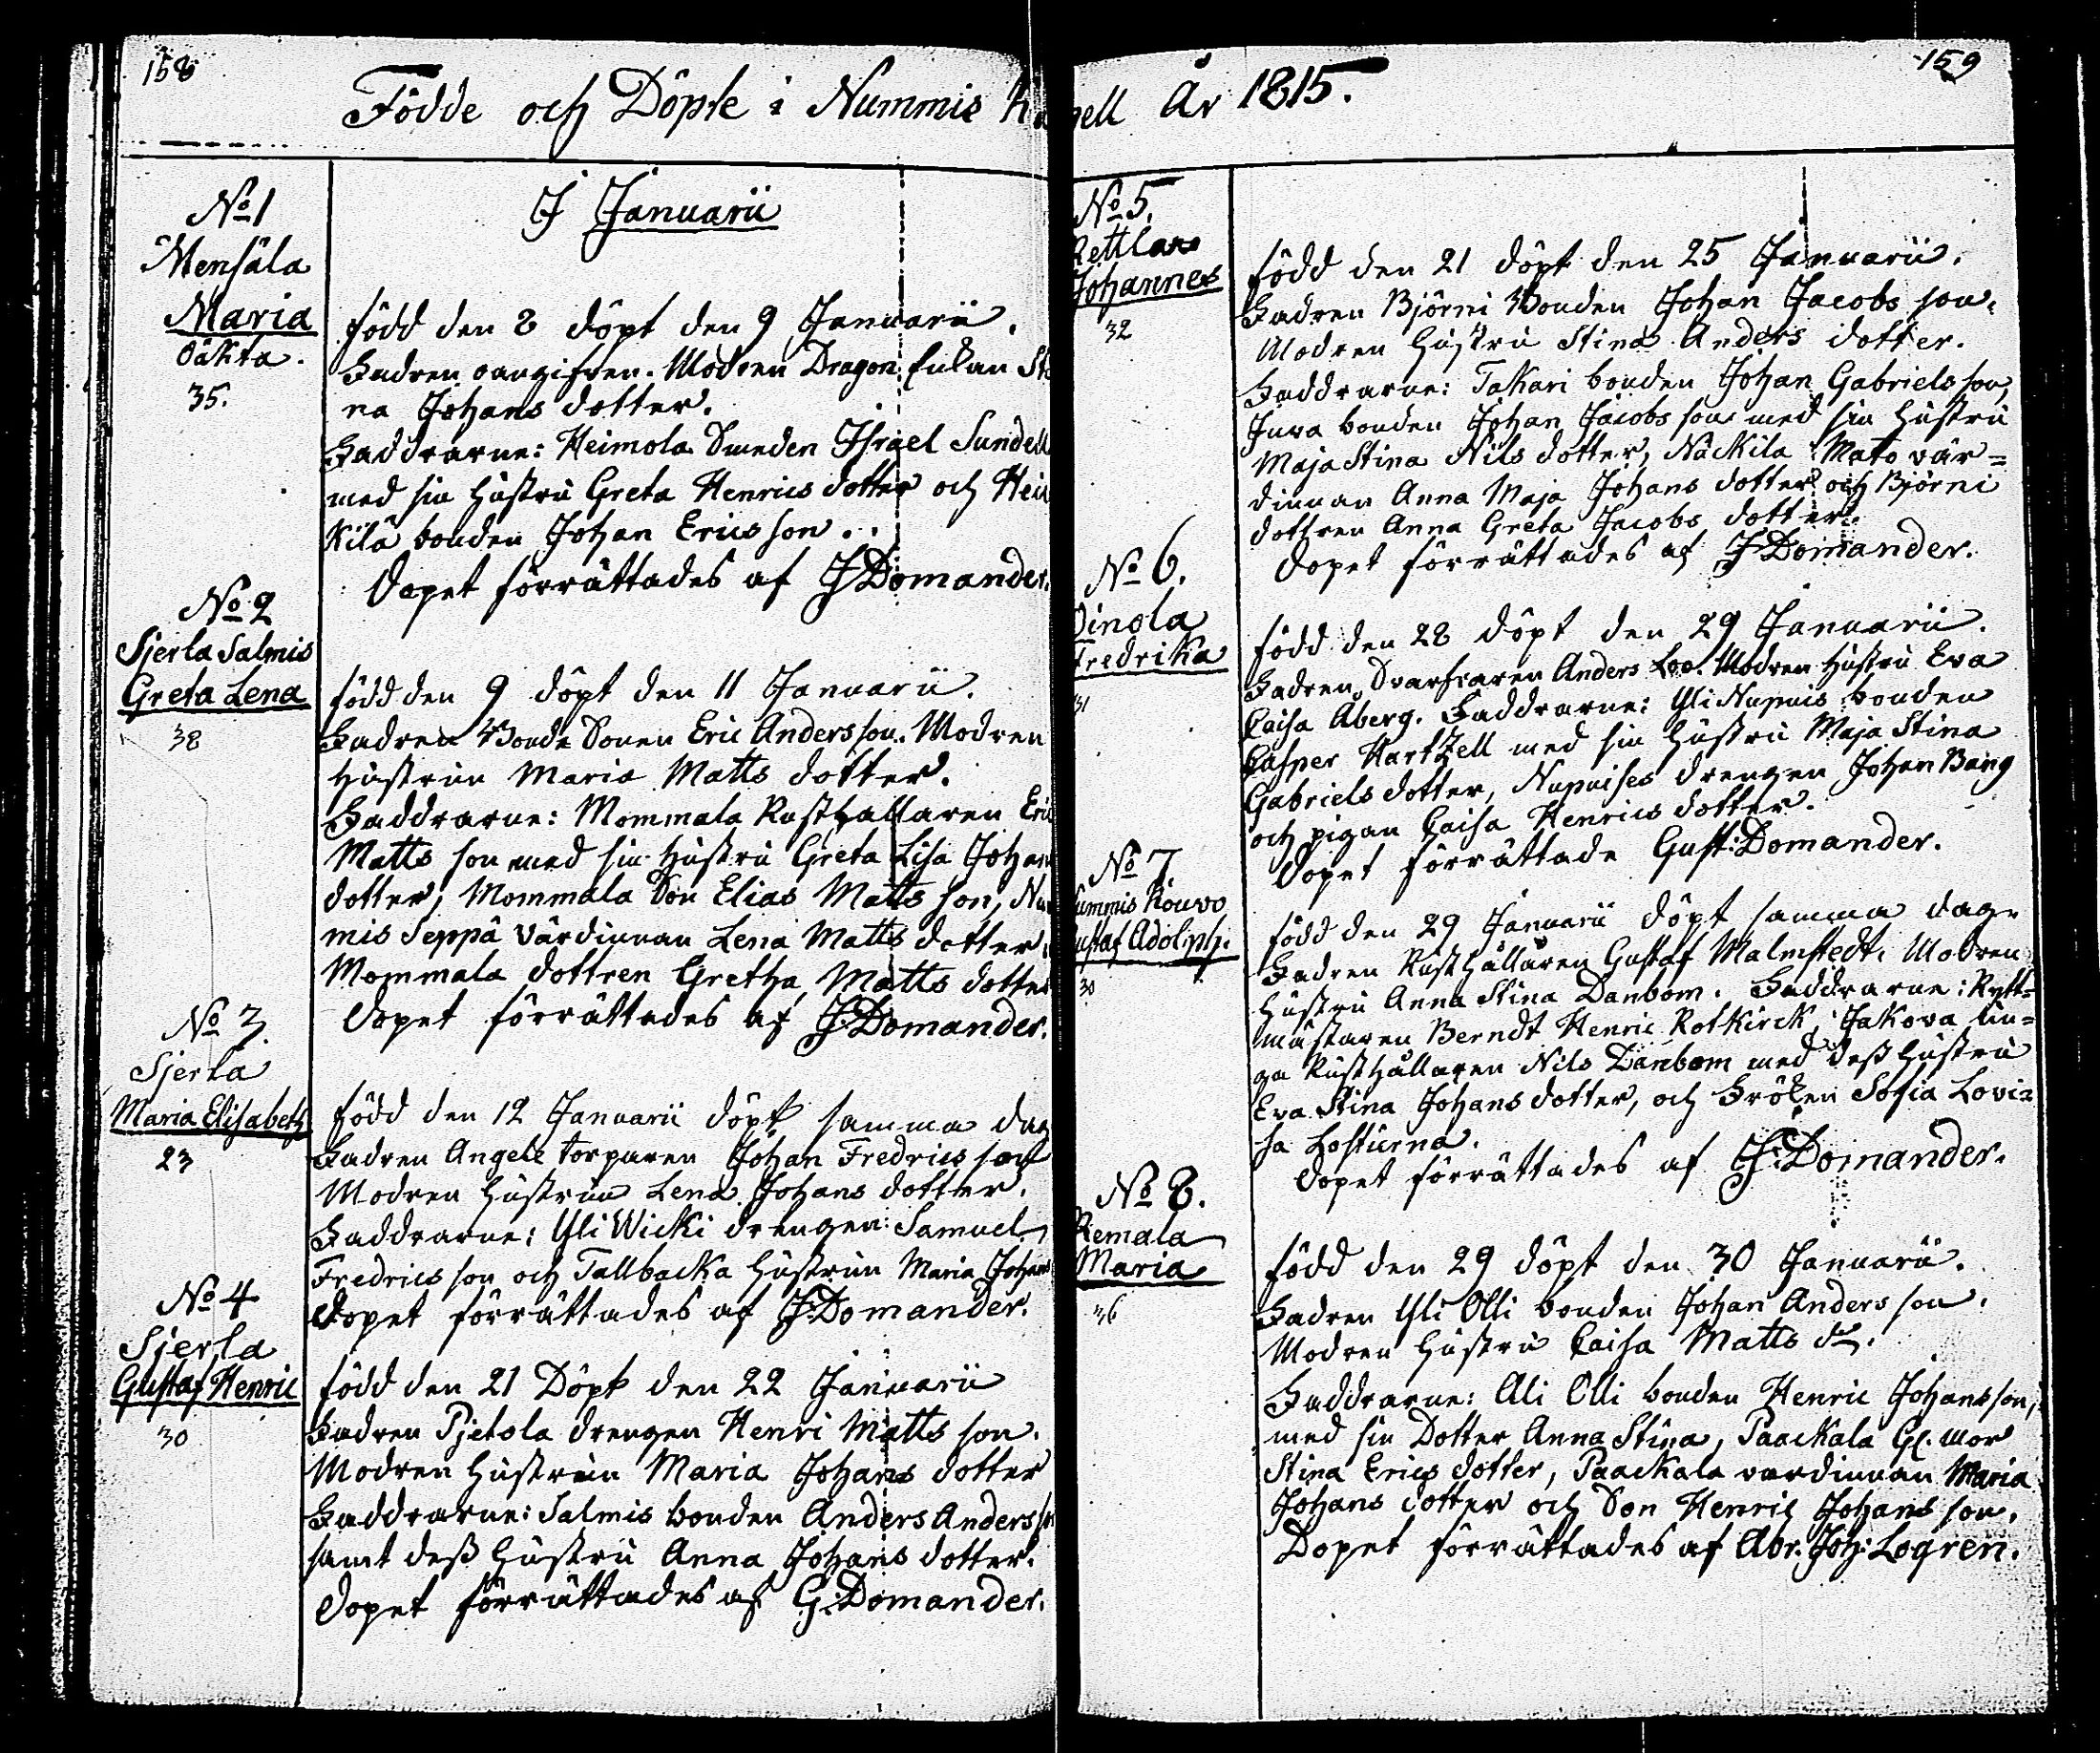 158
Födde och Döpte i Nummis
No 1
Mensäla
Maria
oäkta.
35.
J Januarii
född den 8 döpt den 9 Januarii.
Fadren oangifven. Modren Dragon Enkan Sti
na Johans dotter.
Faddrarne: Heimola Smeden Israel Sundell
med sin hustru Greta Henrics dotter och Hei
kilä bonden Johan Ericsson.
Dopet förrättades af J Domander.
No 2
Sjerla Salmis
Greta Lena
38
född den 9 döpt den 11 Januarii.
Fadren Bonde Sonen Eric Andersson. Modren
Hustrun Maria Matts dotter.
Faddrarne: Mommala Rusthållaren Eric
Matts son med sin hustru Greta Lisa Johans
dotter, Mommala Son Elias Matts son, Num
mis Seppä värdinnan Lena Matts dotter,
Mommala dottren Gretha Matts dotter
Dopet förrättades af J Domander.
No 3.
Sjerla
Maria Elisabeth
23
född den 12 Januarii döpt samma dag
Fadren Angele torparen Johan Fredrics son
Modren hustrun Lena Johans dotter.
Faddrarne: Yli Wicki drengen Samuel
Fredrics son och Tallbacka hustrun Maria Johans
Dopet förrättades af J Domander.
No 4
Sjerla
Gustaf Henric
30
född den 21 Döpt den 22 Januarii
Fadren Pjetola drengen Henri Matts son.
Modren hustrun Maria Johans dotter
Faddrarne: Salmis bonden Anders Anders son
samt dess hustru Anna Johans dotter.
Dopet förrättades af G: Domander.
159
pell År 1815.
No 5.
Rettlax
Johannes
32
född den 21 döpt den 25 Januarii.
Fadren Björni Bonden Johan Jacobs son.
Modren hustru Stina Anders dotter.
Faddrarne: Takari bonden Johan Gabriels son,
Juva bonden Johan Jacobs son med sin hustru
Maja Stina Nils dotter, Näckila Mato vär=
dinnan Anna Maja Johans dotter och Björni
dottren Anna Greta Jacobs dotter.
Dopet förrättades af J Domander.
No 6.
Oinola
Fredrika
31
född den 28 döpt den 29 Januarii.
Fadren Svarfvaren Anders Loo. Modren hustru Eva
Caisa Åberg. Faddrarne: Yli Nupnis bonden
Casper Hartzell med sin hustru Maja Stina
Gabriels dotter, Nupnises drengen Johan Bång
och pigan Caisa Henrics dotter.
Dopet förrättade Gust: Domander.
No 7
Nummis Kouvo
Gustaf Adolph.
30
född den 29 Januarii döpt samma dag.
Fadren Rusthållaren Gustaf Malmstedt. Modren
Hustru Anna Stina Danbom. Faddrarne: Rytt=
mästaren Berndt Henric Rotkirck, Jakova un=
ga Rusthållaren Nils Danbom med dess hustru
Eva Stina Johans dotter, och Fröken Sofia Lovi=
sa
Dopet förrättades af J: Domander.
No 8.
Remala
Maria
36
född den 29 döpt den 30 Januarii.
Fadren Yli Olli bonden Johan Anders son.
Modren hustru Caisa Matts dr.
Faddrarne: Ali Olli bonden Henric Johansson,
med sin Dotter Anna Stina, Paackala Gl. mor
Stina Erics dotter, Paackala värdinnan Maria
Johans dotter och Son Henric Johans son.
Dopet förrättades af Abr. Joh: Logren.